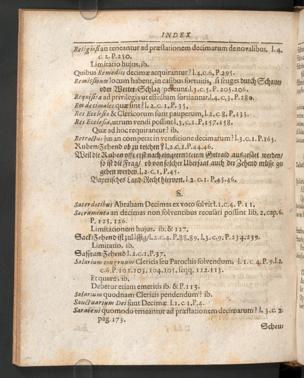 INDEX
Religiosi an teneantur ad præstationem decimarum de novalibus. l. 4.
c. 1. P. 230.
Limitatio hujus. ib.
Quibus Remediis decimæ acquirantur? l. 4. c. 6, P. 295.
Remissionem locum habent, in casibus fortuitis, si fruges durch Schauer
oder Wetter-Schlag pereunt. l. 3. c. 5. P. 205. 206.
Requisita ad privilegii ut effectum sortiantur. l. 4. c. 3. P. 280.
Res decimales quæ sint? l. 2. C. 1. P. 35.
Res Ecclesiæ & Clericorum sunt pauperum, l. 1. c. 8. P. 135.
Res Ecclesiæ, utrum vendi possint. l. 3. c. 1. P. 157. 158.
Quæ ad hoc requirantur? ib.
Retractus an competat in venditione decimarum? l. 3. c. 1. P. 163.
Ruben-Zehend ob zu reichen? l. 2. c. 1. P. 44. 46.
Weil die Ruben offt erst nach eingeerntem Getraid ausgesäet werden/
so ist die Frag/ ob von solchen auch der Zehend müsse ge-
geben werden. l. 2. c. 1. P. 45.
Bayerisches Land-Recht hiervon. l. 2. c. 1. P. 45. 46.
S.
Sacerdotibus Abraham Decimas ex voto solvit. l. 1. c. 4. P. 11.
Sacramenta an decimas non solvencibus recusari possint lib. 2. cap. 6.
P. 125. 126.
Limitationem hujus. ib. & 127.
Sack-Zehend ist zulässig/ l. 2. c. 4. P. 88. 89. l. 3. c. 9. P. 234. 239.
Limitatio. ib.
Saffran Zehend l. 2. c. 1. P. 37.
Salarium congruum Clericis seu Parochis solvendum. l. 1. c. 4. P. 9. l. 2.
c. 6. P. 101. 103. 104. 105. seqq. 112. 113.
Et quare. ib.
Debetur etiam emeritis ib. & P. 113.
Salarium quodnam Clericis pendendum? ib.
Sanctuarium Dei sunt Decimæ l. 1. c. 1. P. 4.
Saraceni quomodo teneantur ad præstationem decimarum? l. 3. c. 2.
pag. 173.